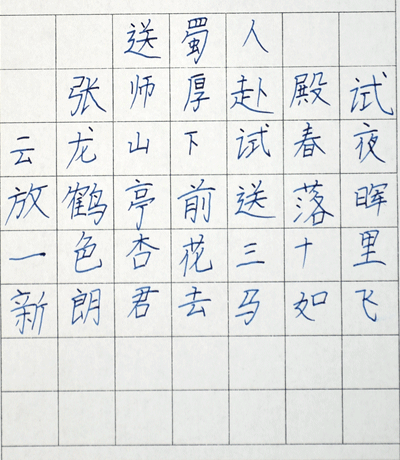 送蜀人
张师厚赴殿试
云龙山下试春夜
放鹤亭前送落晖
一色杏花三十里
新朗君去马如飞